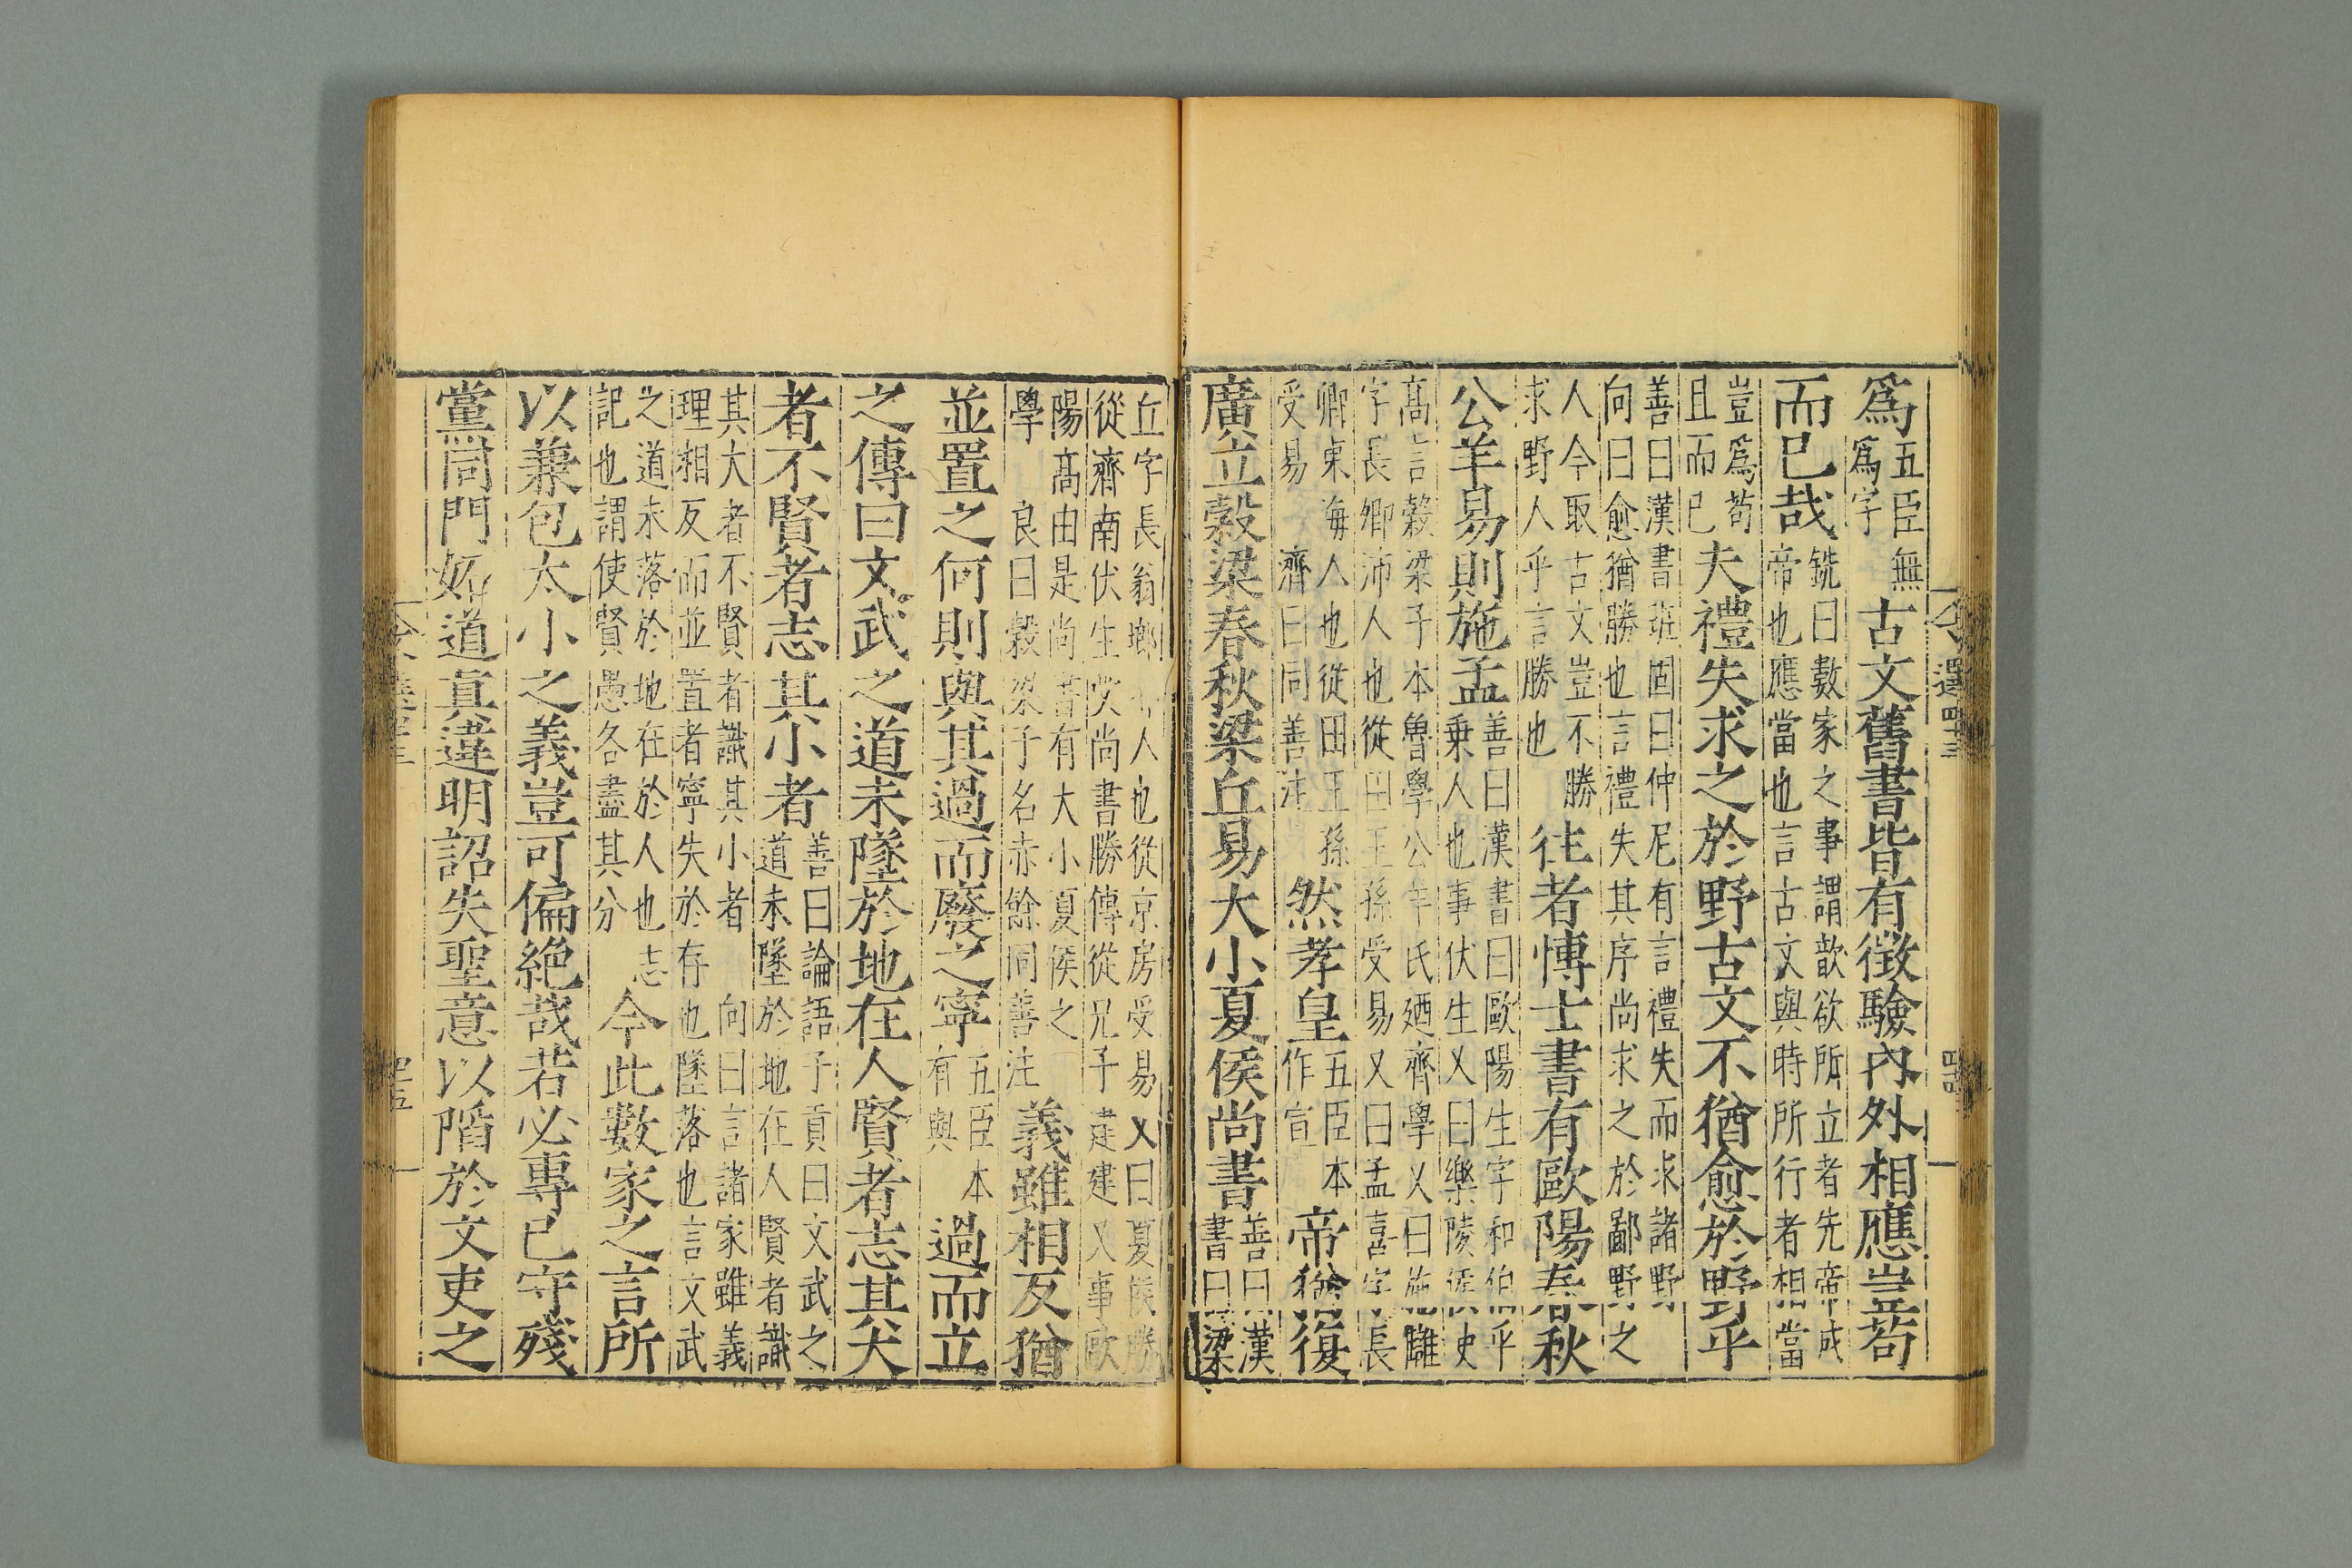 爲五臣無爲字古文舊書皆有徴驗內外相應豈苟
而已哉銑曰數家之事謂歆欲所立者先帝成帝也應當也言古文與時所行者相當
豈爲苟且而已夫禮失求之於野古文不猶愈於野乎
善曰漢書班固曰仲尼有言禮失而求諸野向曰愈猶勝也言禮失其序尚求之於鄙野之
人今取古文豈不勝求野人乎言勝也往者愽士書有歐陽春秋
公羊易則施孟善曰漢書曰歐陽生字和伯千乗人也事伏生又曰樂陵侯史
髙言榖梁子本魯學公羊氏廼齊學又曰施讎字長卿沛人也從田王孫受易又曰孟喜字長
卿東海人也從田王孫受易濟曰同善注然孝皇五臣本作宣帝猶復
廣立榖梁春秋梁丘易大小夏侯尚書善曰漢書曰梁
丘字長翁瑯人也從京房受易又曰夏侯勝從濟南伏生受尚書勝傳從兄子建建又事歐
陽髙由是尚書有大小夏侯之學良曰榖梁子名赤餘同善注義雖相反猶
並置之何則與其過而廢之寧五臣本有與過而立
之傳曰文武之道未墜於地在人賢者志其大
者不賢者志其小者善曰論語子貢曰文武之道未墜於地在人賢者識
其大者不賢者識其小者向曰言諸家雖義理相反而並置者寧失於存也墜落也言文武
之道未落於地在於人也志記也謂使賢愚各盡其分今此數家之言所
以兼包大小之義豈可偏絶哉若必專已守殘
黨同門妬道真違明詔失聖意以䧟於文吏之
文選四十三
四